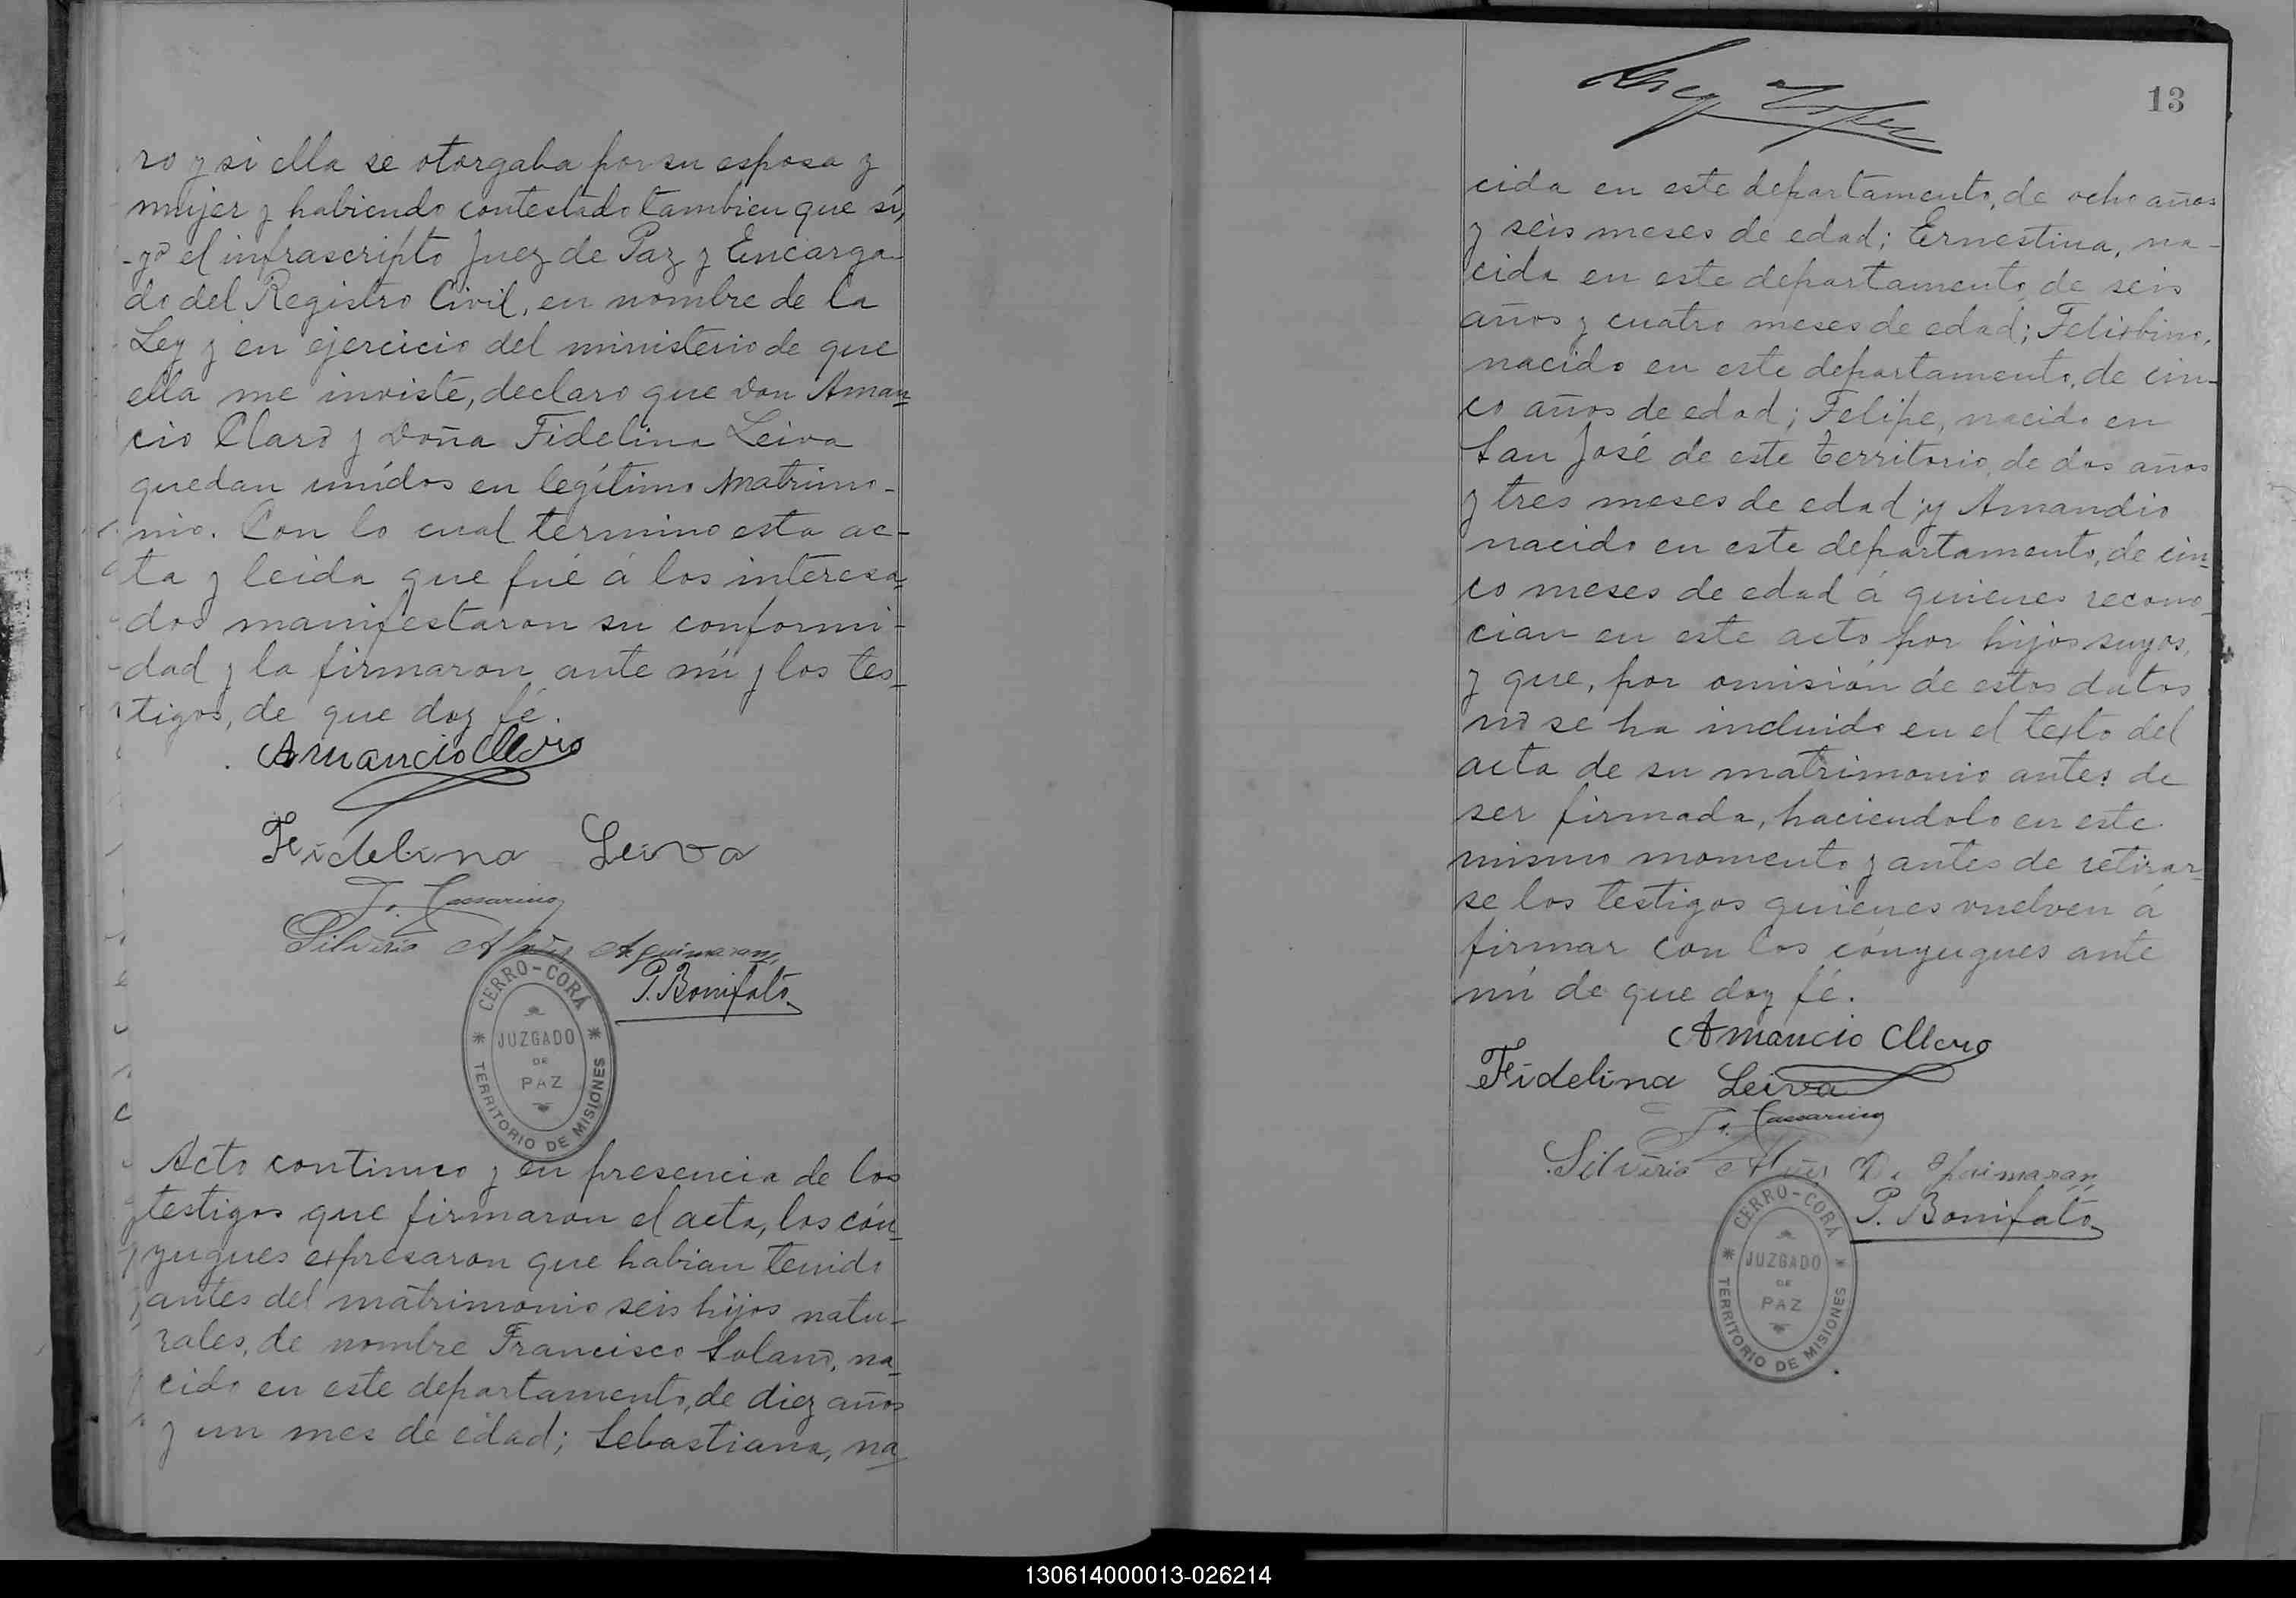 ro y si ella se otorgaba por su esposo y
mujer y habiendo contestado tambien que sí,
yo el infrascripto Juez de Paz y Encarga-
do del Registro Civil, en nombre de la
Ley y en ejercicio del ministerio de que
ella me inviste, declaro que Don Aman-
cio Claro y Doña Fidelina Leiva
quedan unidos en legítimo Matrimo-
nio. Con lo cual termino esta ac-
ta y leida que fué á los interesa-
dos manifestaron su conformi-
dad y la firmaron ante mí y los tes-
tigos, de que doy fé.
Amancio Claro
Fidelina Leiva
Silverio
P. Bonifato
CERRO-CORÁ
JUZGADO
DE
PAZ
TERRITORIO DE MISIONES
Acto continuo y en presencia de los
testigos que firmaron el acta, los cón-
yugues expresaron que habian tenido
antes del matrimonio seis hijos natu-
rales, de nombre Francisco Solano, na-
cido en este departamento, de diez años
y un mes de edad; Sebastiana, na-
13
cida en este departamento, de ocho años
y seis meses de edad; Ernestina, na-
cida en este departamento, de seis
años y cuatro meses de edad; Felisbino,
nacido en este departamento, de cin-
co años de edad; Felipe, nacido en
San José de este Territorio, de dos años
y tres meses de edad; y Amandio
nacido en este departamento, de cin-
co meses de edad á quienes recono-
cian en este acto por hijos suyos,
y que, por omisión de estos datos
no se ha incluido en el texto del
acta de su matrimonio antes de
ser firmada, haciendolo en este
mismo momento y antes de retirar-
se los testigos quienes vuelven á
firmar con los cónyugues ante
mí de que doy fé.
Amancio Claro
Fidelina Leiva
Silverio
P. Bonifato
CERRO-CORÁ
JUZGADO
DE
PAZ
TERRITORIO DE MISIONES
130614000013-026214